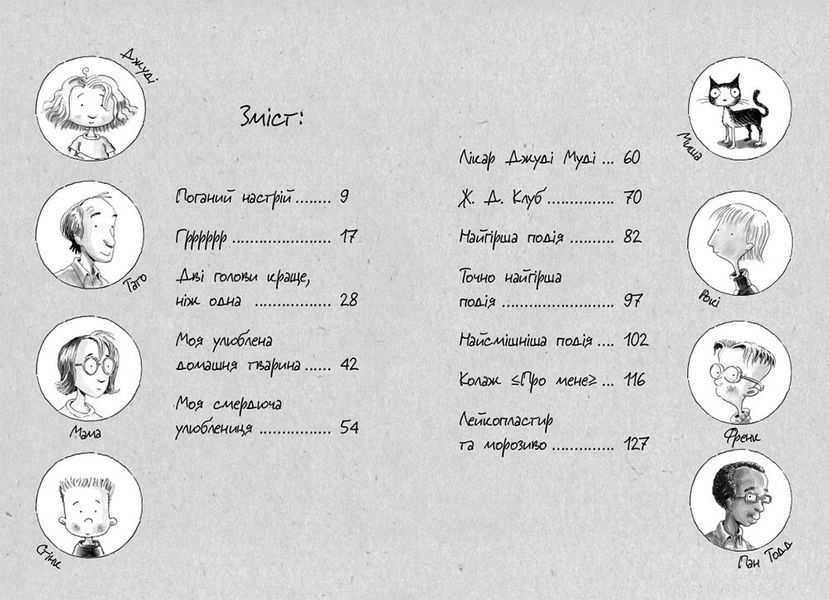 Джуді
Тато
Мама
Стінк
Зміст:
Поганий настрій ........ 9
Ґррррр ....................... 17
Дві голови краще,
ніж одна .................. 28
Моя улюблена
домашня тварина ...... 42
Моя смердюча
улюблениця ................. 54
Лікар Джуді Муді ... 60
Ж. Д. Клуб ................ 70
Найгірша подія .......... 82
Точно найгірша
подія .......................... 97
Найсмішніша подія .... 102
Колаж «Про мене» ... 116
Лейкопластир
та морозиво .............. 127
Миша
Рокі
Френк
Пан Тодд